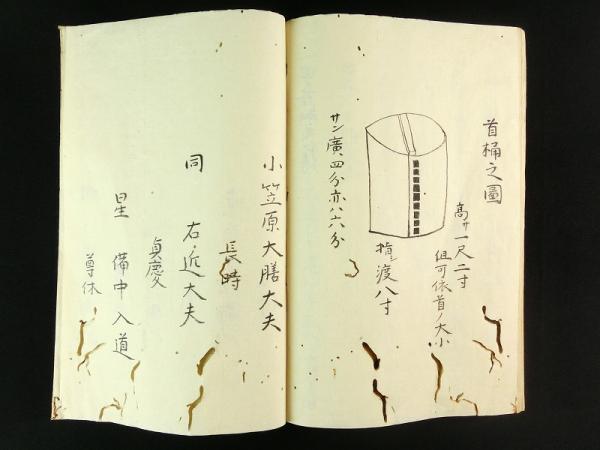 首桶之圖
高サ一尺二寸
但可依首ノ大小
指シ渡八寸
サン廣四分亦ハ六分
小笠原大膳大夫
長時
同 右近大夫
貞慶
星 備中入道
尊休